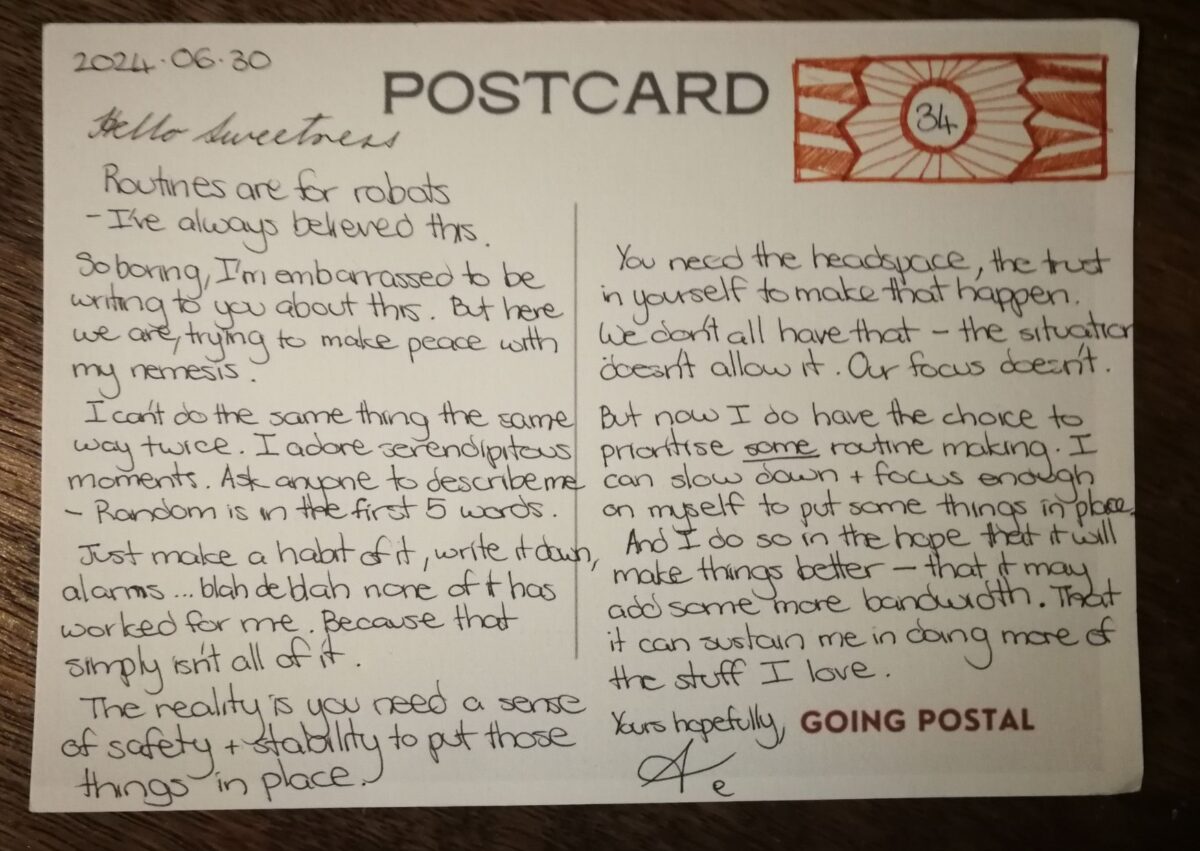 2024.06.30
POSTCARD
34
Hello Sweetness
Routines are for robots
- I've always believed this.
So boring, I'm embarrassed to be
writing to you about this. But here
we are, trying to make peace with
my nemesis.
I can't do the same thing the same
way twice. I adore serendipitous
moments. Ask anyone to describe me
- Random is in the first 5 words.
Just make a habit of it, write it down,
alarms... blah de blah none of it has
worked for me. Because that
simply isn't all of it.
The reality is you need a sense
of safety + stability to put those
things in place.
You need the headspace, the trust
in yourself to make that happen.
We don't all have that - the situation
doesn't allow it. Our focus doesn't.
But now I do have the choice to
prioritise some routine making. I
can slow down + focus enough
on myself to put some things in place.
And I do so in the hope that it will
make things better - that it may
add some more bandwidth. That
it can sustain me in doing more of
the stuff I love.
Yours hopefully,
GOING POSTAL